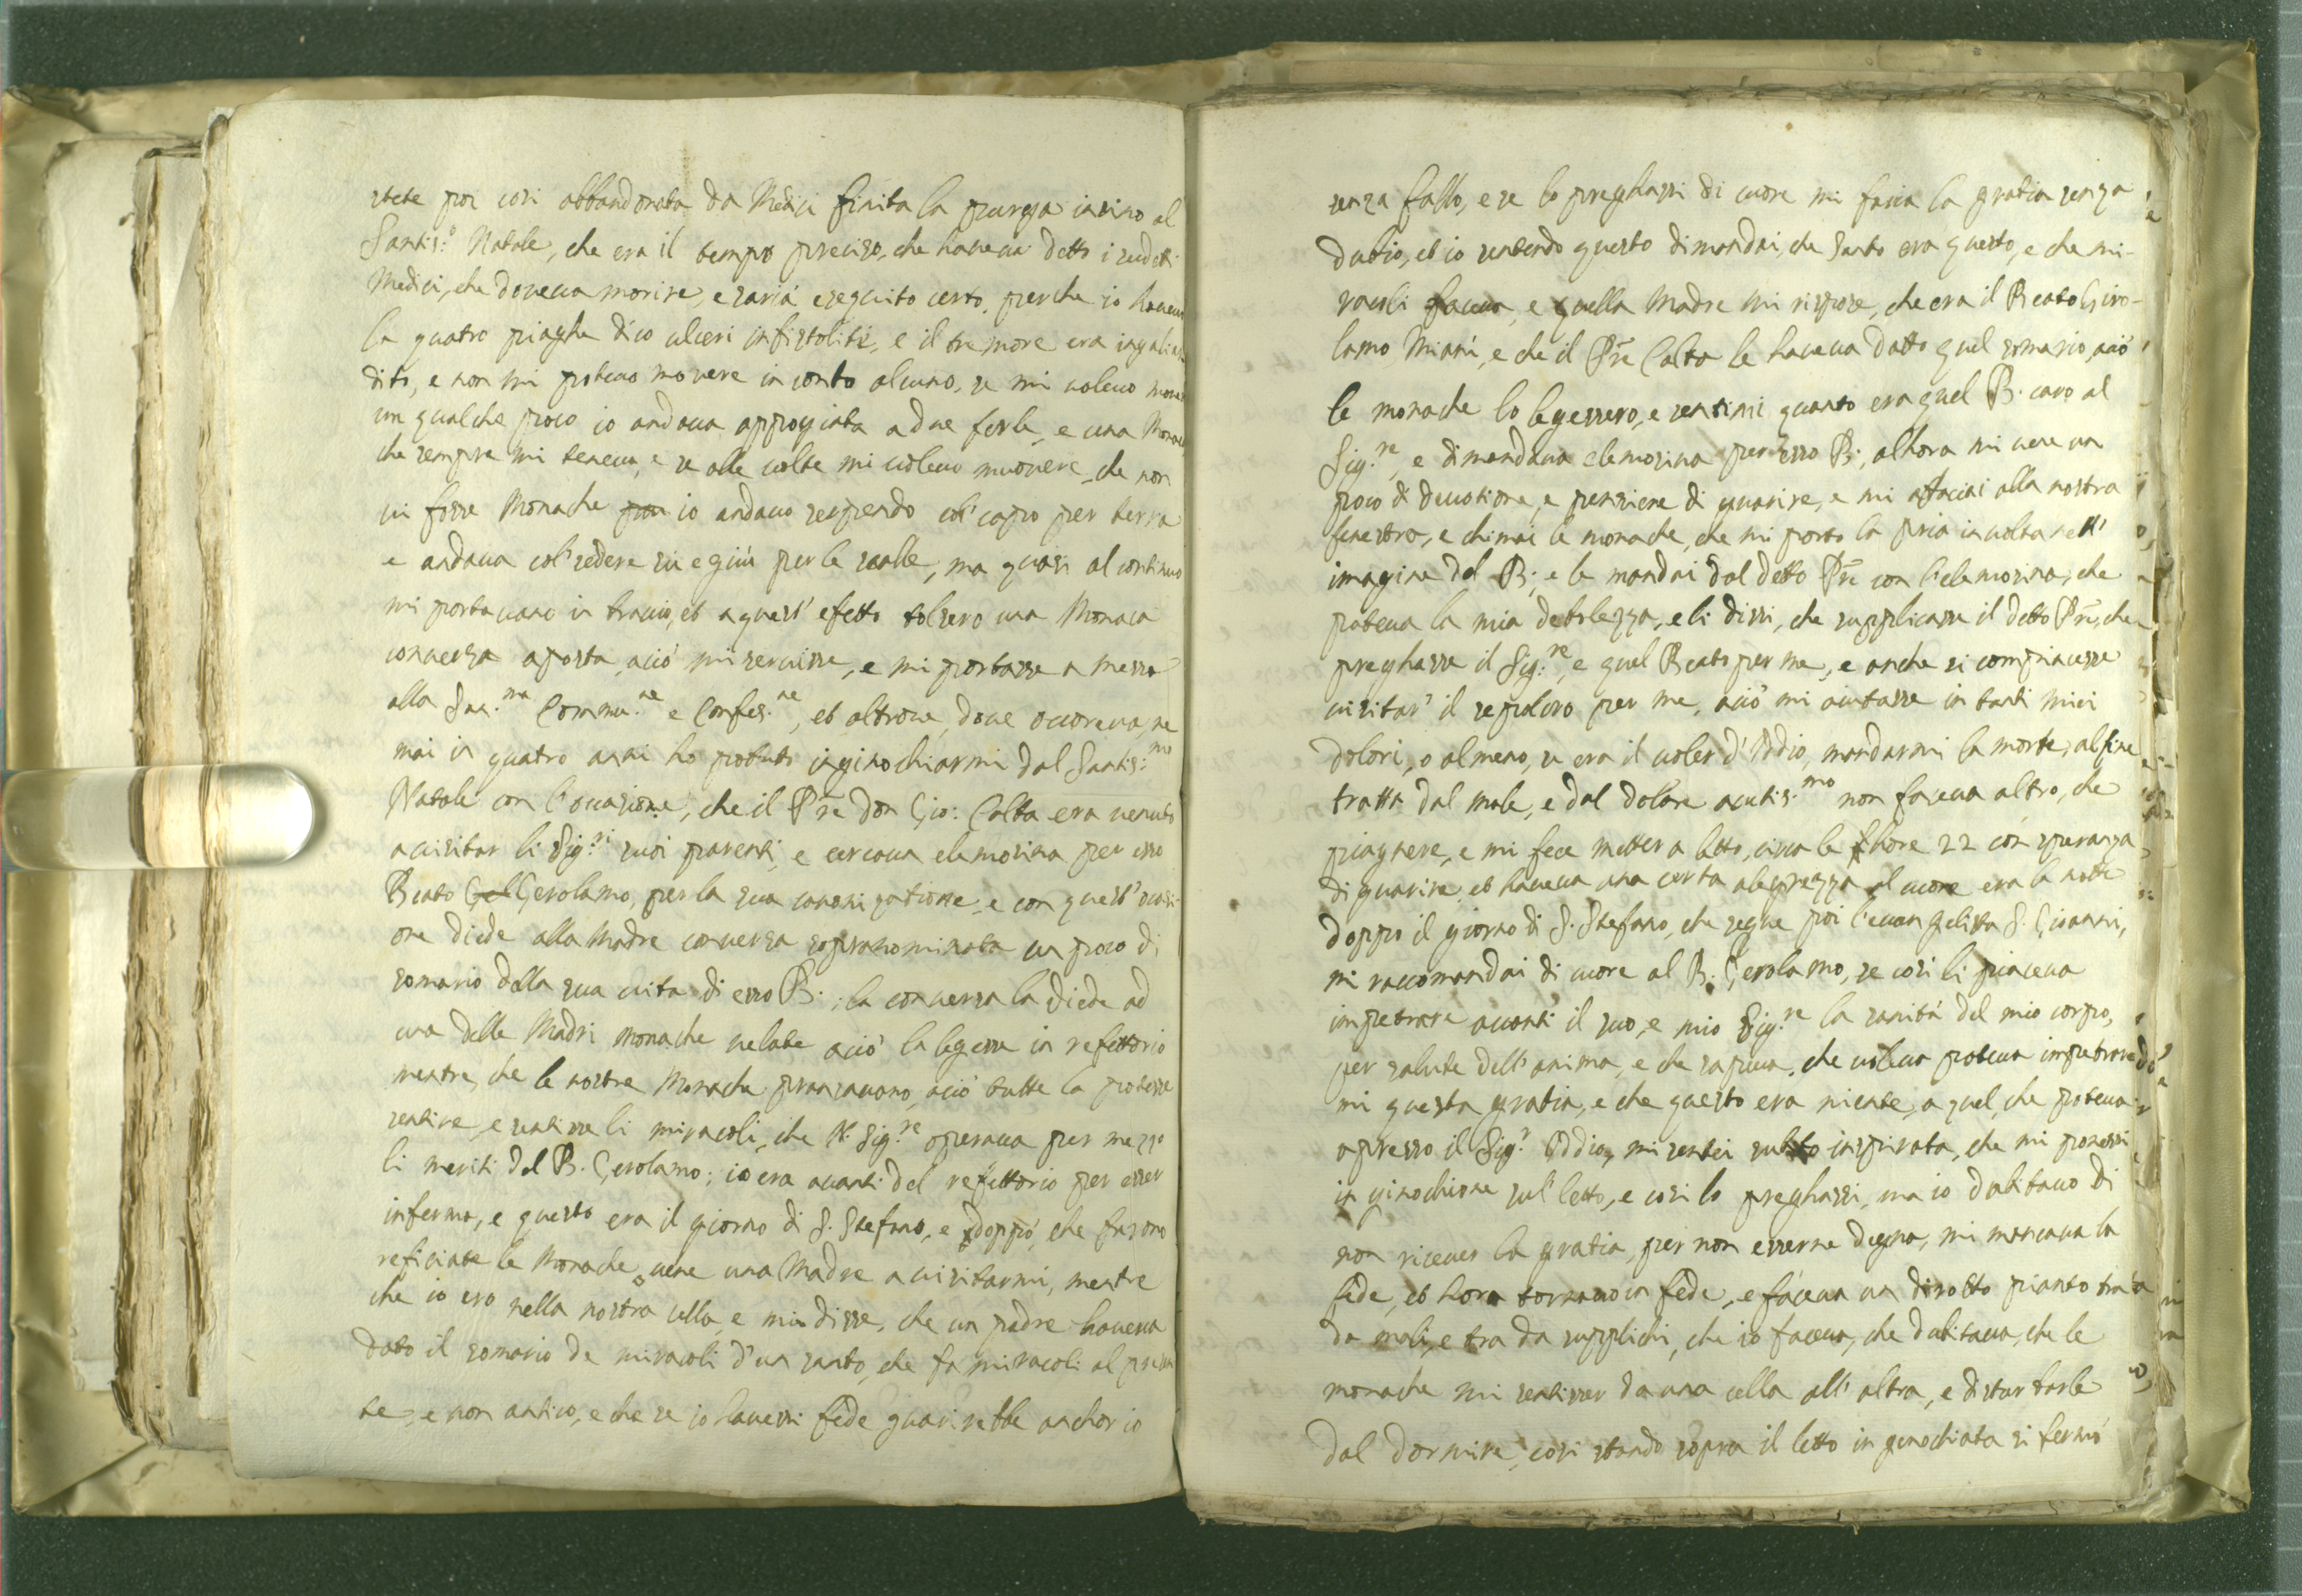 stete poi così abbandonata da Medici finita la purga insino al
Santis.º Natale, che era il tempo preciso, che haveva detto i sudeti
Medici, che doveva morire, e saria eseguito certo, perche io haveva
la quatro piaghe dico ulceri infistoliti, e il tremore era ingaliar
dito, e non mi potevo movere in conto alcuno, se mi volevo mover
un qualche poco io andava appogiata a due ferle, e una Monaca
che sempre mi teneva, e se alle volte mi volevo muovere, che non
vi fosse Monache io andavo serpendo col' capo per terra
e andava col' sedere su e giù per le scalle, ma quasi al continuo
mi portavano in bracio, et a quest' efetto tolsero una Monaca
conversa aposta, aciò mi servisse, e mi portasse a messa
alla Sac.ma Commu.ne e Confes.ne, et altrove, dove occoreva, ne
mai in quatro anni ho potuto inginochiarmi dal Santis.mo
Natale con l'ocasione, che il Pre Don Gio: Calta era venuto
a visitar li Sig.ri suoi parenti, e cercava elemosina per esso
Beato Gel Gerolamo, per la sua canonizatione, e con quest' ocasi
one diede alla Madre conversa sopranominata un poco di
somario della sua vita di esso B.; la conversa la diede ad
una delle Madri monache velate aciò la legesse in refettorio
mentre, che le nostre Monache pransavano, aciò tutte la potesse
sentire, e sentisse li miracoli, che N. Sig.re operava per mezzo
li meriti del B. Gerolamo; io era avanti del refettorio per esser
inferma, e questo era il giorno di S. Stefano, e doppò, che furono
reficiate le Monache, vene una Madre a visitarmi, mentre
che io ero nella nostra cella, e mi disse, che un padre haveva
dato il somario de miracoli d'un santo, che fa miracoli al presen
te, e non antico, e che se io havessi fede guarirebbe anchor io
senza fallo, e se lo preghassi di cuore mi faria la gratia senza
dubio, et io sentendo questo dimandai, che santo era questo, e che mi-
racoli faceva, e quella Madre mi rispose, che era il Beato Giro-
lamo Miani, e che il Pre Calta le haveva datto quel somario, aciò
le monache lo legessero, e sentissi quanto era quel B. caro al
Sig.re, e dimandava elemosina per esso B., alhora mi vene un
poco di devotione, e pensiere di guarire, e mi afaciai alla nostra
finestra, e chimai le monache, che mi portò la pria involta nell'
imagine del B.; e le mandai dal detto Pre con l'elemosina, che
poteva la mia debolezza, e li dissi, che supplicasse il detto Pre, che
preghasse il Sig.re, e quel Beato per me, e anche si compiacesse
visitar' il sepolcro per me, aciò mi aiutasse in tanti miei
dolori, o almeno, se era il voler d'Iddio, mandarmi la morte; alfine
tratta dal male, e dal dolore acutis.mo non faceva altro, che
piagnere, e mi fece metter a letto, circa le hore 22 con speranza
di guarire, et haveva una certa alegrezza al cuore era la notte
doppo il giorno di S. Stefano, che segue poi l'evangelista S. Gioanni,
mi raccomandai di cuore al B. Gerolamo, se così li piaceva
impetrare avanti il suo, e mio Sig.re la sanità del mio corpo,
per salute dell'anima, e che sapeva, che voleva poteva impetrare
mi questa gratia, e che questo era niente, a quel, che poteva
apresso il Sig.r Iddio, mi sentei subito inspirata, che mi ponessi
in ginochione sul' letto, e così lo preghassi, ma io dubitavo di
non ricever la gratia, per non esserne degna, mi mancava la
fede, et hora tornavo in fede, e faceva un dirotto pianto tra
da mali, e tra da supplichi, che io faceva, che dubitava, che le
monache mi sentisser da una cella all' altra, e disturbarle
dal dormire, così stando sopra il letto in genochiata si fermò